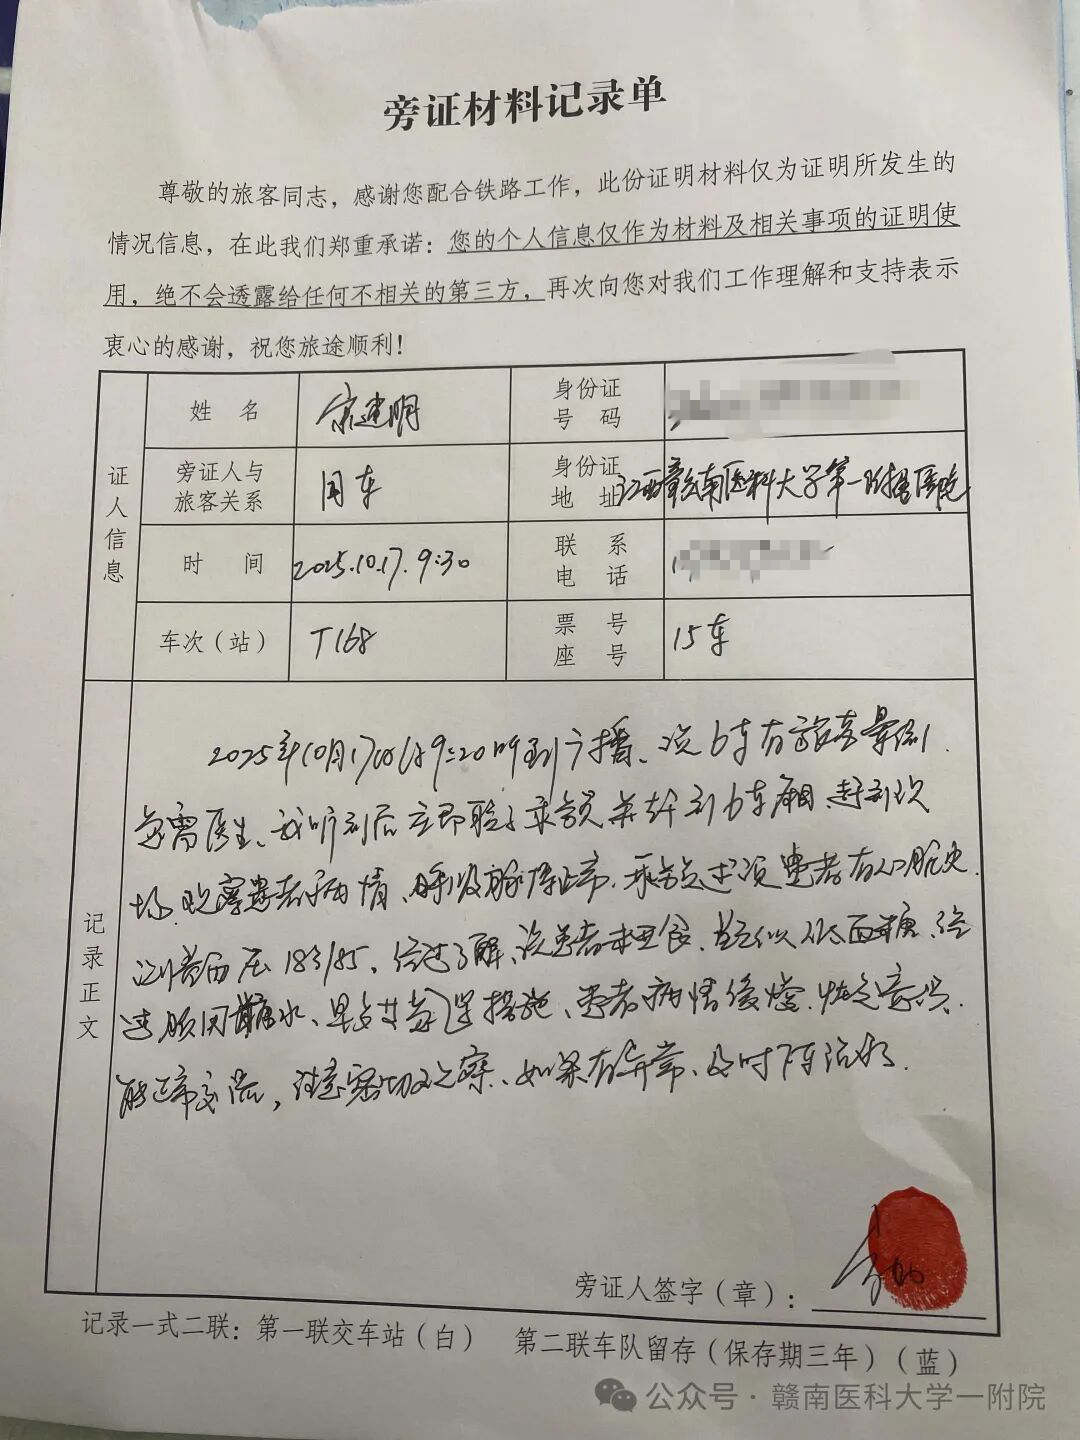 旁证材料记录单
尊敬的旅客同志，感谢您配合铁路工作，此份证明材料仅为证明所发生的
情况信息，在此我们郑重承诺：您的个人信息仅作为材料及相关事项的证明使
用，绝不会透露给任何不相关的第三方，再次向您对我们工作理解和支持表示
衷心的感谢，祝您旅途顺利！
证人信息
姓 名
建明
身份证号 码
旁证人与旅客关系
同车
身份证地 址
江西赣南医科大学第一附属医院
时 间
2025.10.17. 9:30
联 系电 话
车次（站）
T168
票 号座 号
15车
记录正文
2025年10月17日 9:20听到广播、说6车有旅客晕倒
急需医生、我听到后立即 并赶到6车厢，赶到现
场，观察患者病情、呼吸脉搏正常，患者有心脏史
测量血压183/85，经过了解，该患者未进食，疑似低血糖，经
过服用糖水、等措施、患者病情缓解，恢复意识．
能正常交流，注意密切观察、如果有异常、及时下车治疗
旁证人签字（章）：
记录一式二联：第一联交车站（白） 第二联车队留存（保存期三年）（蓝）
公众号·赣南医科大学一附院